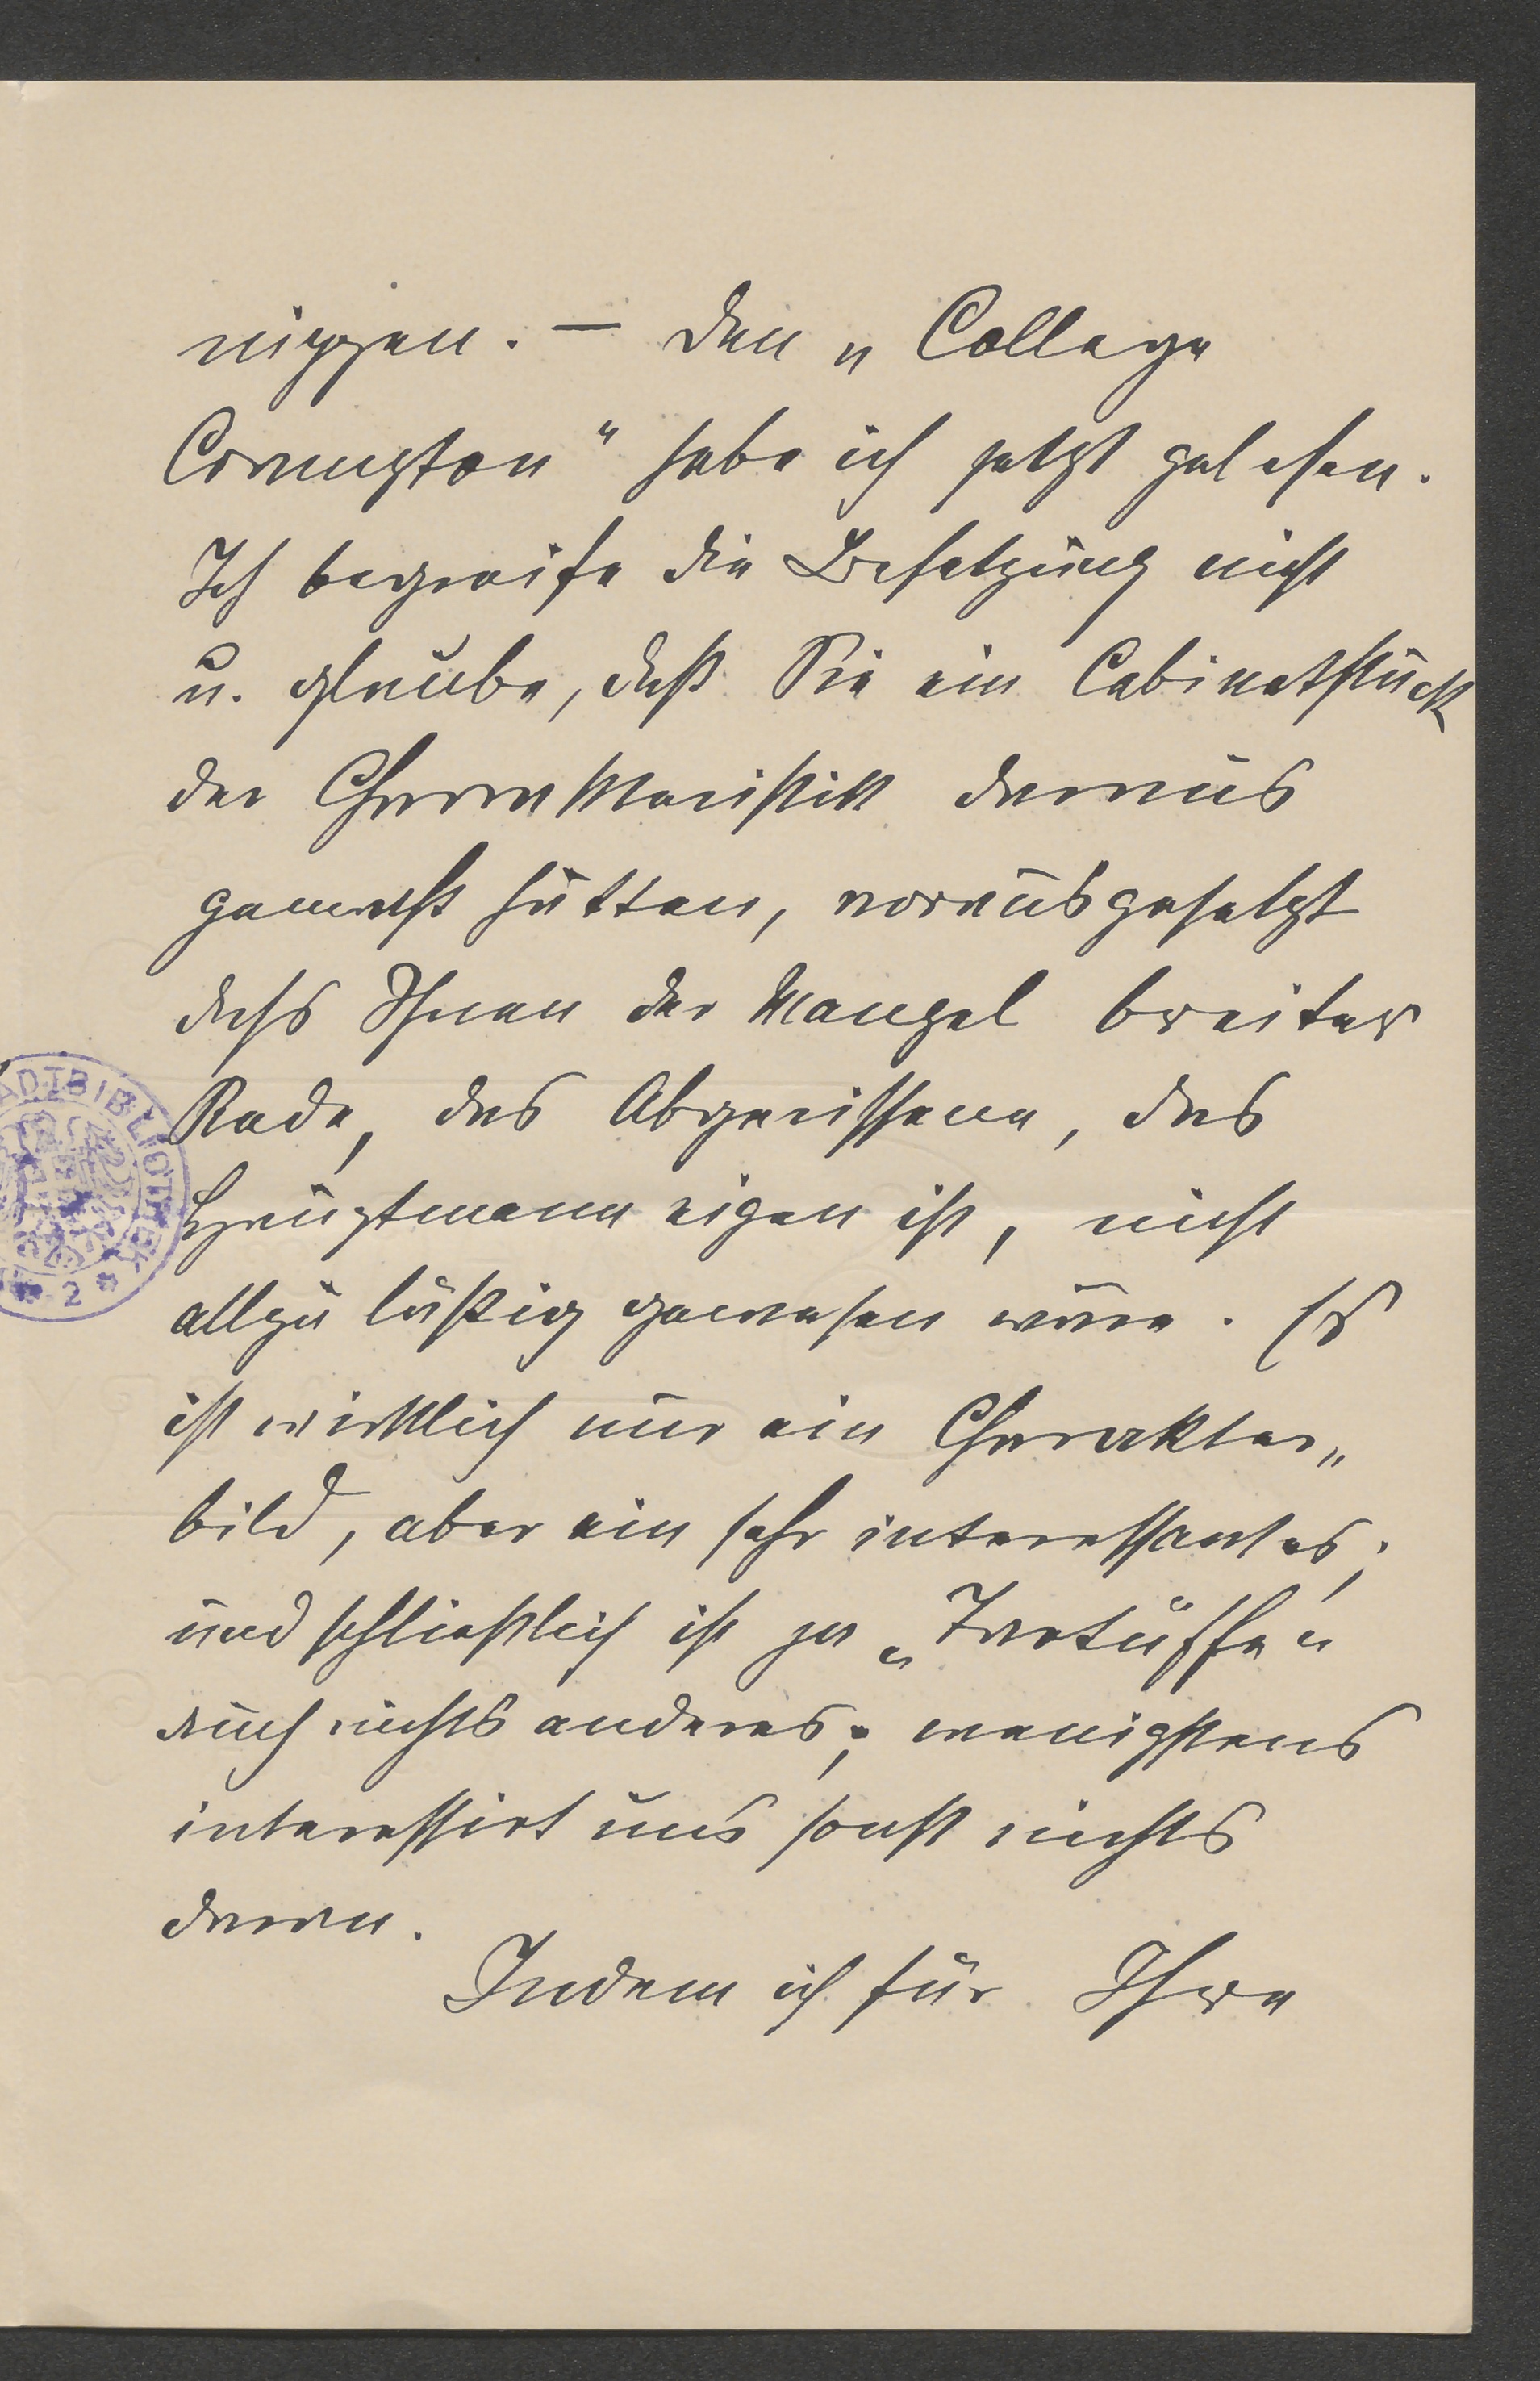 nippen. – Den „College
Crampton“ habe ich jetzt gelesen.
Ich begreife die Besetzung nicht
u. glaube, daß Sie ein Cabinetstück
der Charakteristik daraus
gemacht hätten, vorausgesetzt
dass Ihnen der Mangel breiter
Rede, das Abgerissene, das
Hauptmann eigen ist, nicht
allzu lästig gewesen wäre. Es
ist wirklich nur ein Charakter„
bild, aber ein sehr interessantes;
und schließlich ist ja „Tartüffe“
auch nichts anderes; wenigstens
interessirt uns sonst nichts
daran.
Indem ich für Ihre
ADTBIBLIOTHEK
* 2 *